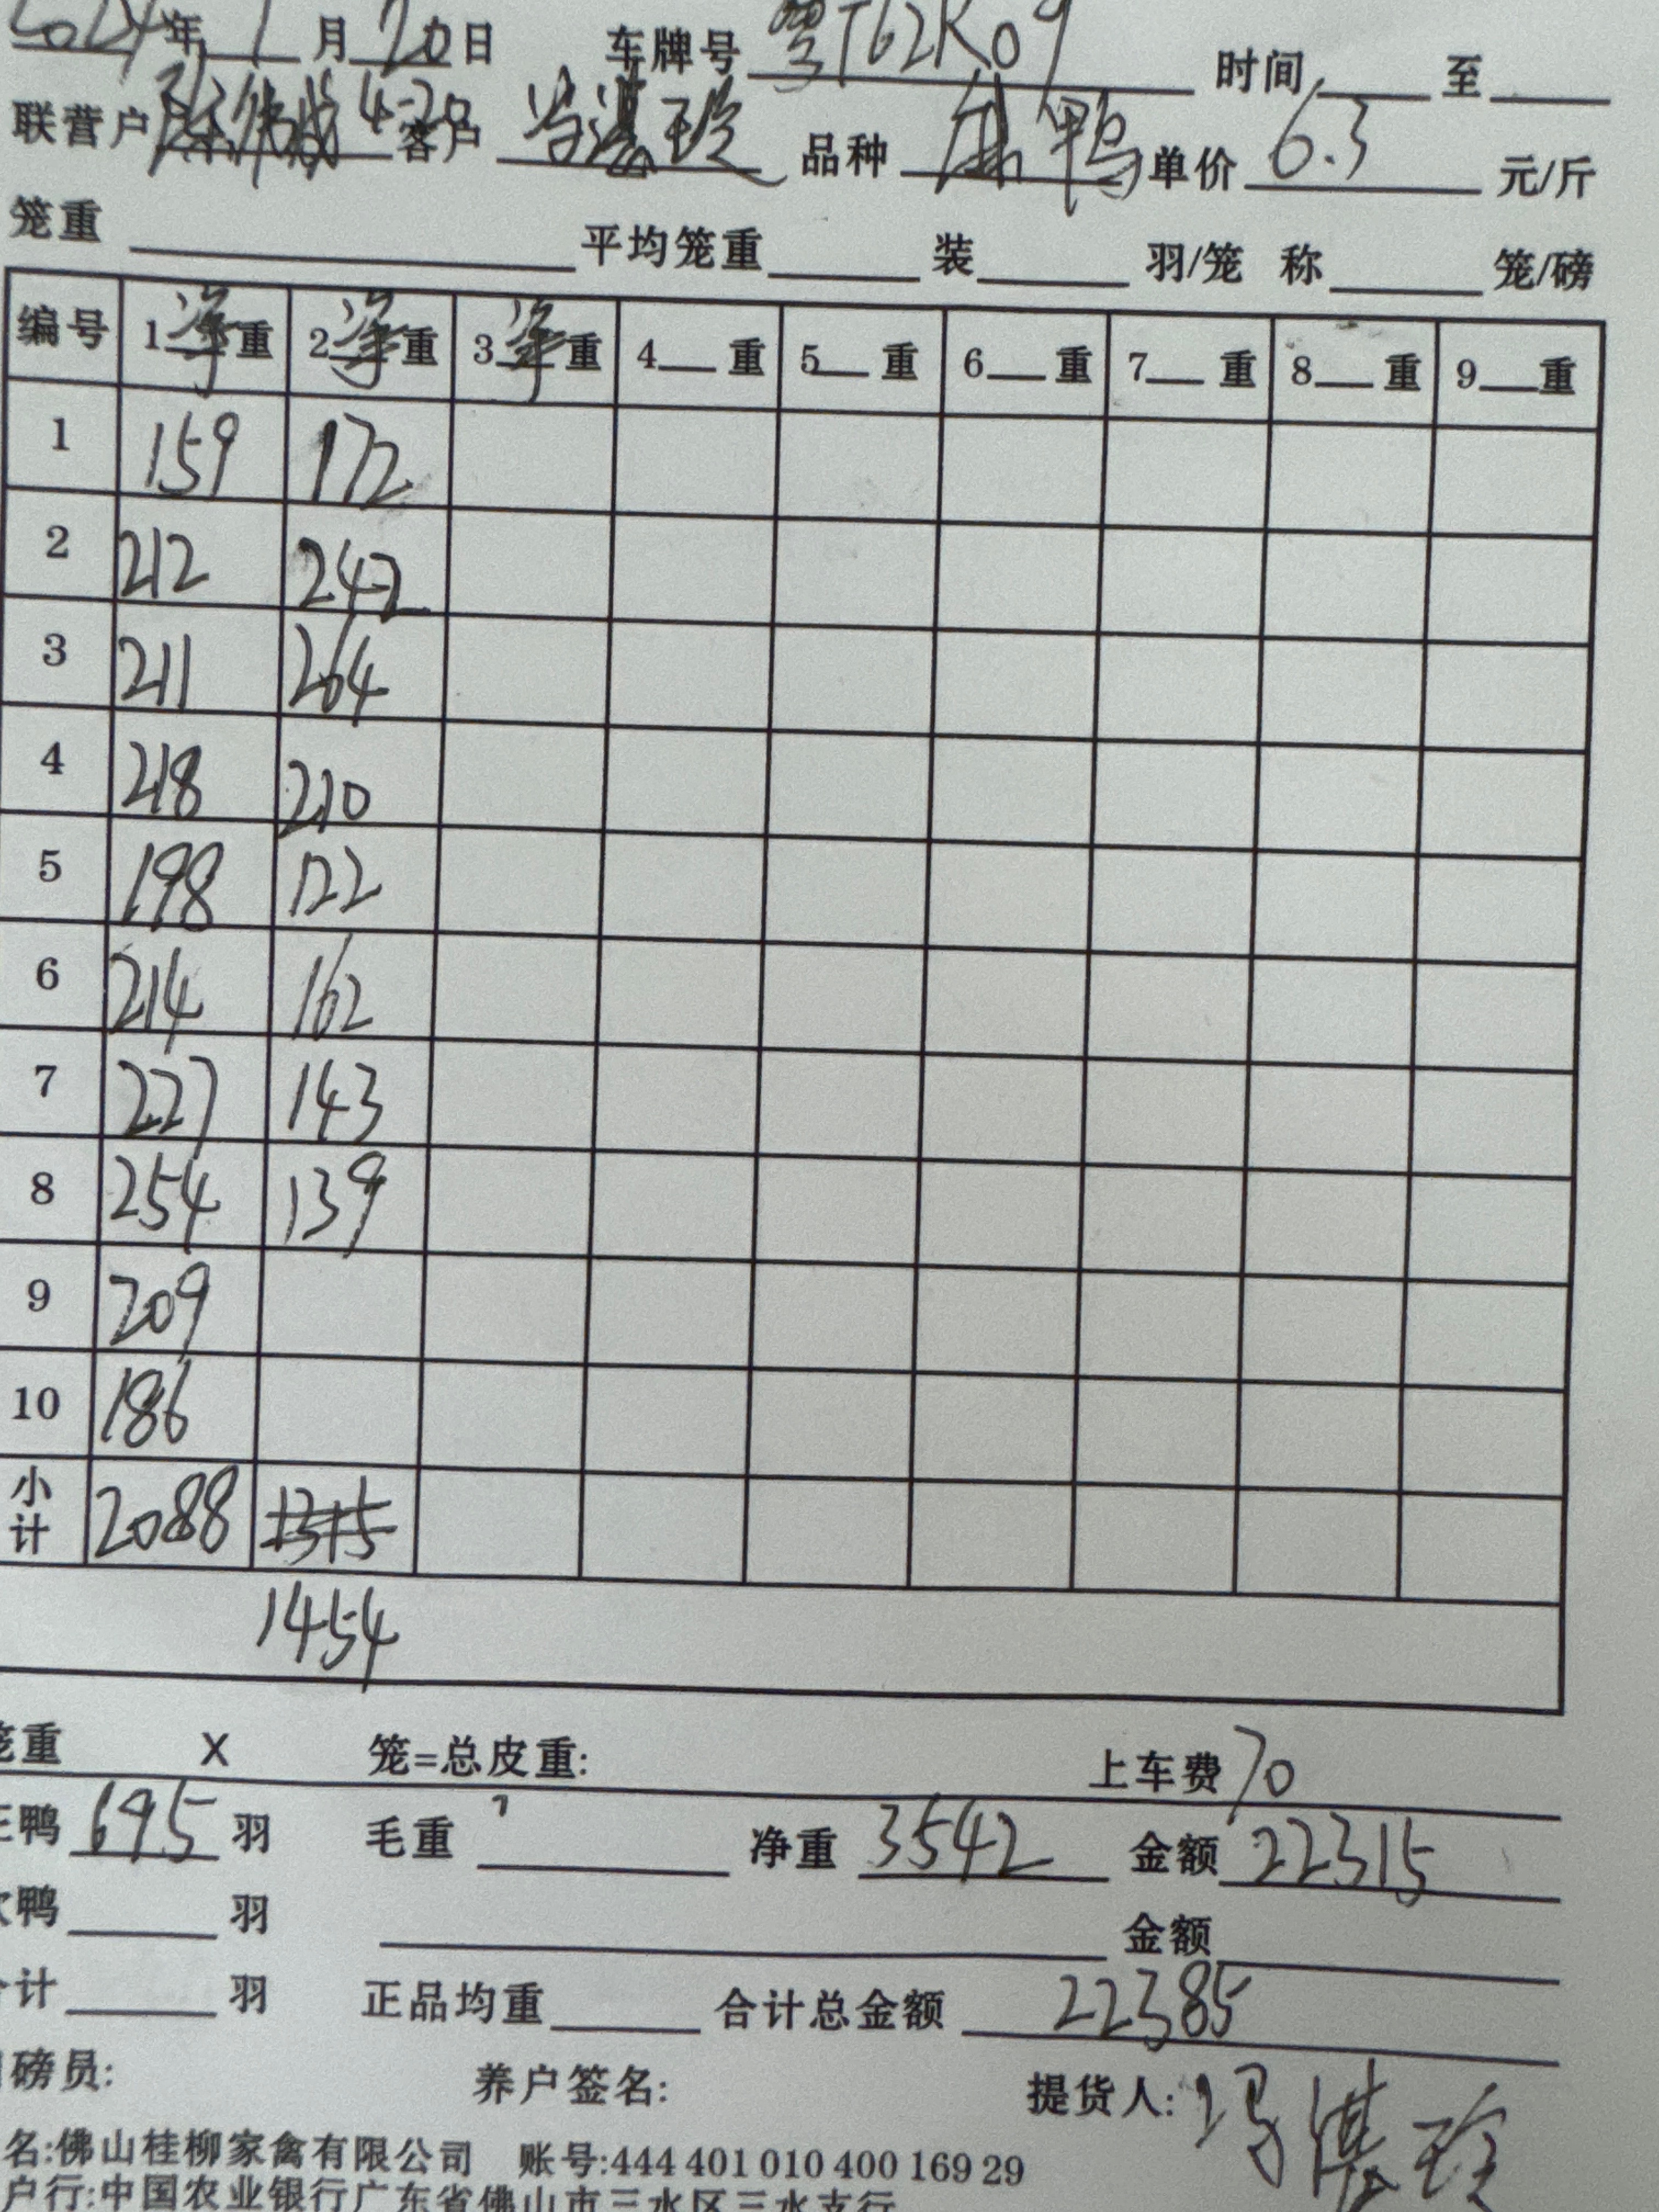 2024年1月20日 车牌号 粤T62K09 时间 至
联营户 4-20 客户 冯湛玲 品种 麻鸭 单价 6.3 元/斤
笼重 平均笼重 装 羽/笼 称 笼/磅
编号 1净重 2净重 3净重 4重 5重 6重 7重 8重 9重
1 159 172
2 212 242
3 211 264
4 218 210
5 198 122
6 214 162
7 227 143
8 254 139
9 209
10 186
小计 2088 1315
1454
笼重 X 笼=总皮重: 上车费 70
正鸭 695 羽 毛重 净重 3542 金额 22315
次鸭 羽 金额
合计 羽 正品均重 合计总金额 22385
司磅员: 养户签名: 提货人: 冯湛玲
名:佛山桂柳家禽有限公司 账号:444 401 010 400 169 29
户行:中国农业银行广东省佛山市三水区三水支行